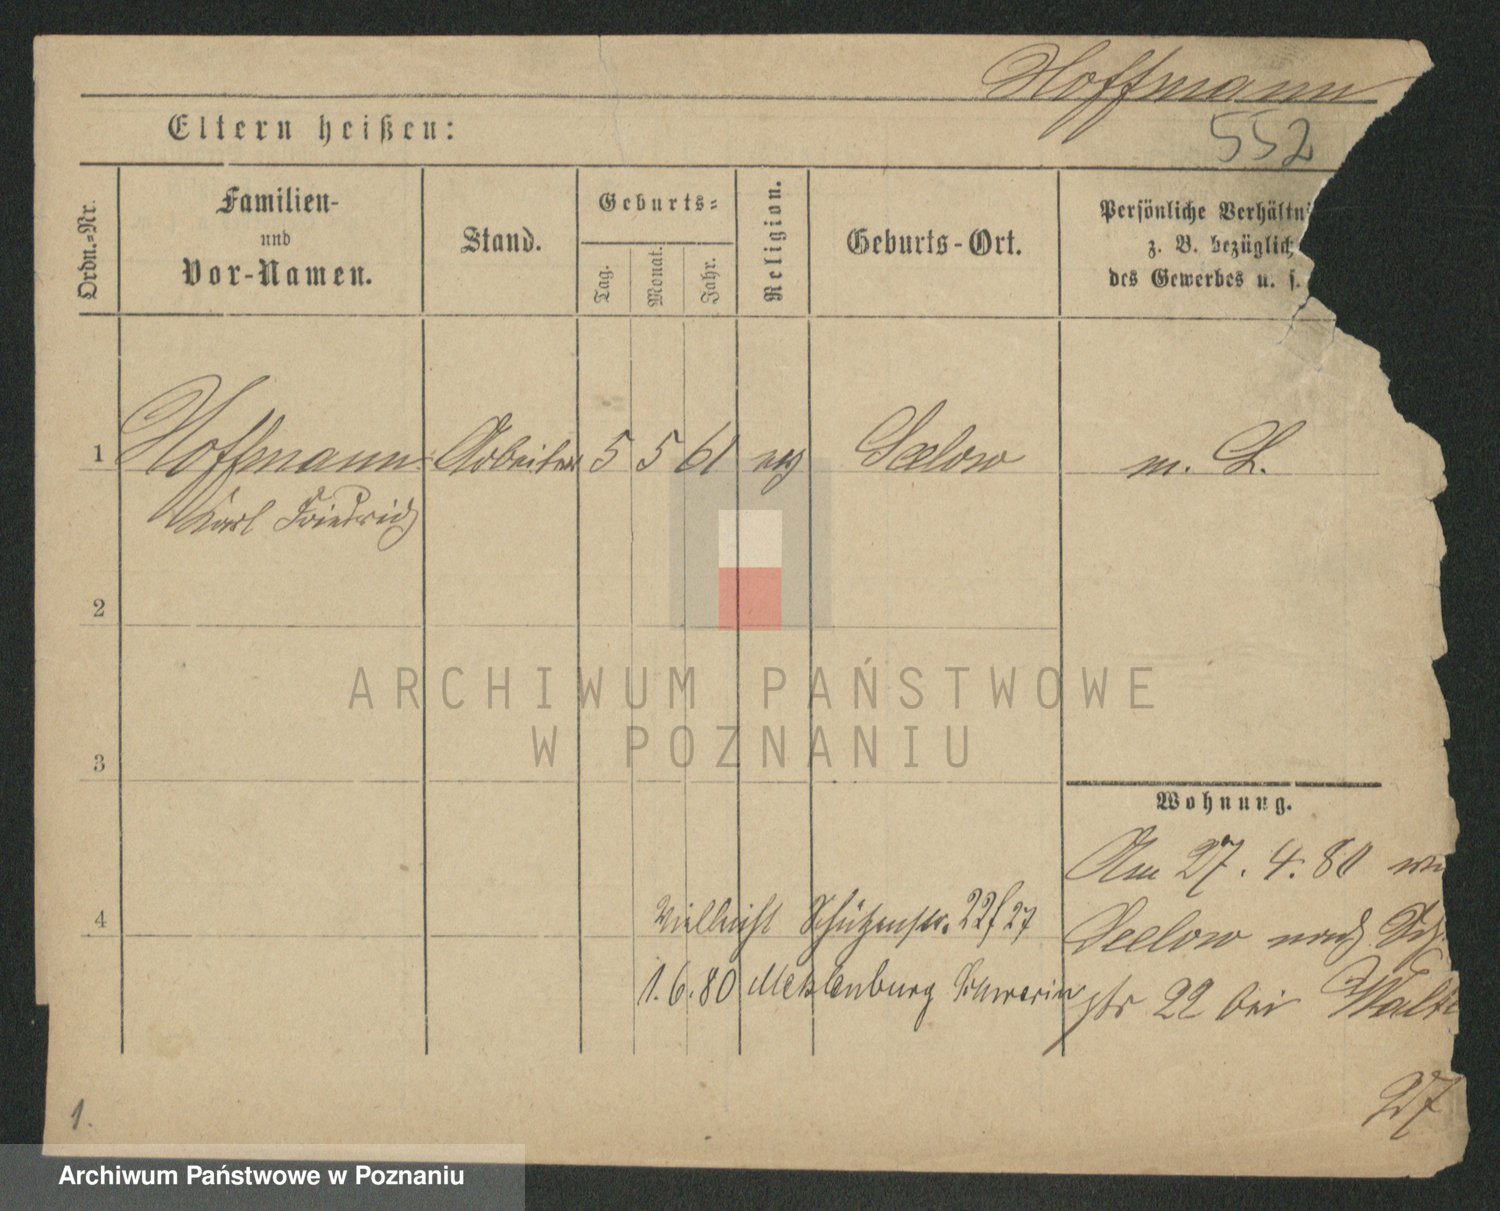 Hoffmann
552
Eltern heißen:
Ordn.=Nr.
Familien-
und
Vor-Namen.
Stand.
Geburts=
Tag.
Monat.
Jahr.
Religion.
Geburts-Ort.
Persönliche Verhältni
z. B. bezüglich
des Gewerbes u. s.
1 Hoffmann Arbeiter 5 5 61 ev Seelow m. L.
Karl Friedrich
2
3
Wohnung.
Am 27. 4. 80
4
Vielleicht Schützenstr. 22/27
Seelow nach Sch
1. 6. 80 Meklenburg Schwerin
str 22 bei Walt
27
1.
ARCHIWUM PAŃSTWOWE
W POZNANIU
Archiwum Państwowe w Poznaniu